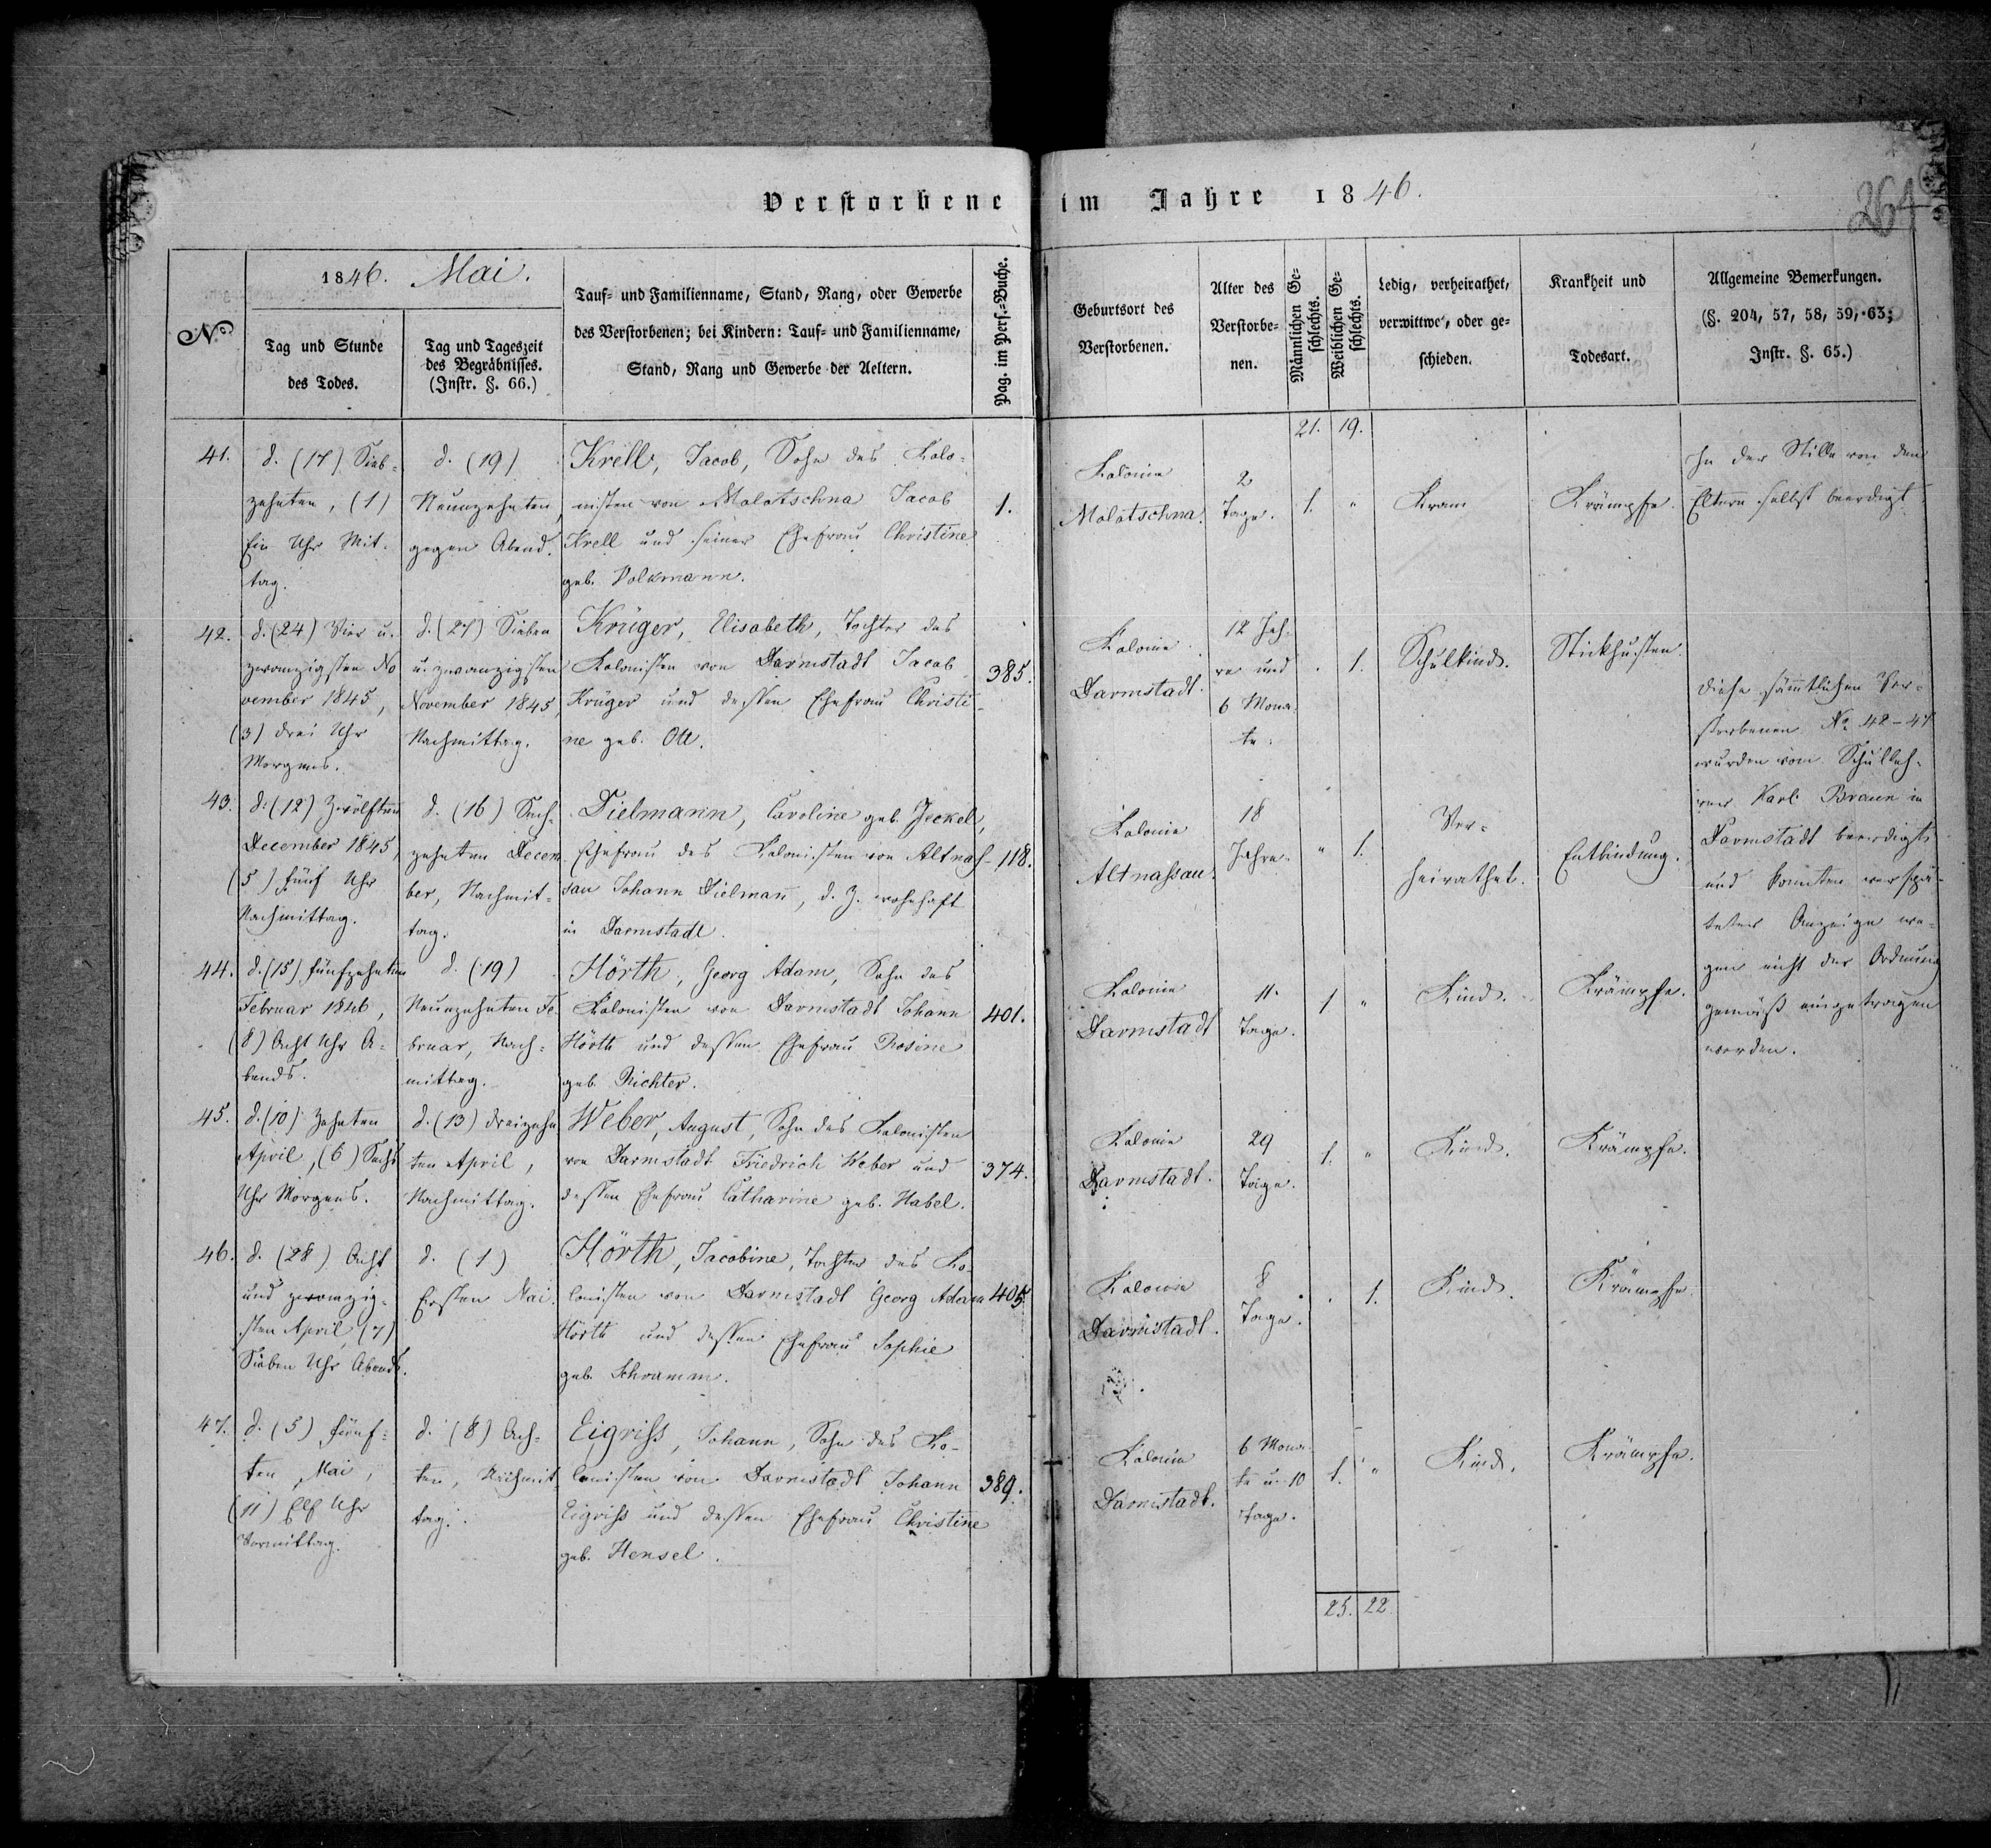 Verstorbene im Jahre 1846.
264
No
1846. Mai.
Tag und Stunde
des Todes.
Tag und Tageszeit
des Begräbnisses.
(Instr. §. 66.)
Tauf- und Familienname, Stand, Rang, oder Gewerbe
des Verstorbenen; bei Kindern: Tauf- und Familienname,
Stand, Rang und Gewerbe der Aeltern.
Pag. im Pers.-Buche.
Geburtsort des
Verstorbenen.
Alter des
Verstorbe-
nen.
Männlichen Ge-
schlechts.
Weiblichen Ge-
schlechts.
Ledig, verheirathet,
verwittwe', oder ge-
schieden.
Krankheit und
Todesart.
Allgemeine Bemerkungen.
(§. 204, 57, 58, 59, 63;
Instr. §. 65.)
21. 19.
41.
d. (17) Sieb-
zehnten, (1)
Ein Uhr Mit-
tag.
d. (19)
Neunzehnten,
gegen Abend.
Krell, Jacob, Sohn des Kolo-
nisten von Molotschna Jacob
Krell und seiner Ehefrau Christine
geb. Volkmann.
1.
Kolonie
Molotschna.
2
Tage.
1. "
Krämpfe.
In der Stille von den
Eltern selbst beerdigt.
42.
d. (24) Vier u.
zwanzigsten No
vember 1845,
(3) drei Uhr
Morgens.
d. (27) Sieben
u. zwanzigsten
November 1845,
Nachmittag.
Krüger, Elisabeth, Tochter des
Kolonisten von Darmstadt Jacob
Krüger und dessen Ehefrau Christi-
ne geb. Ott.
385.
Kolonie
Darmstadt.
12 Jah-
re und
6 Mona-
te.
" 1.
Schulkind.
Stickhusten.
Diese sämtlichen Ver-
storbenen No 42-47
wurden vom Schulleh-
rer Karl Braun in
Darmstadt beerdigt
und konnten verspä-
teter Anzeige we-
gen nicht der Ordnung
gemäß eingetragen
werden.
43.
d. (12) Zwölften
December 1845,
(5) fünf Uhr
Nachmittag.
d. (16) Sech-
zehnten Decem
ber, Nachmit-
tag.
Dielmann, Caroline geb. Jeckel,
Ehefrau des Kolonisten von Altnas-
sau Johann Dielmann, d. Z. wohnhaft
in Darmstadt.
118.
Kolonie
Altnassau.
18
Jahre.
" 1.
Ver-
heirathet.
Entbindung.
44.
d. (15) fünfzehnten
Februar 1846,
(8) Acht Uhr A-
bends.
d. (19)
Neunzehnten Fe-
bruar, Nach-
mittag.
Hörth, Georg Adam, Sohn des
Kolonisten von Darmstadt Johann
Hörth und dessen Ehefrau Rosine
geb. Richter.
401.
Kolonie
Darmstadt
11
Tage.
1 "
Kind.
Krämpfe.
45.
d. (10) Zehnten
April, (6) Sechs
Uhr Morgens.
d. (13) dreizehn
ten April,
Nachmittag.
Weber, August, Sohn des Kolonisten
von Darmstadt Friedrich Weber und
dessen Ehefrau Catharine geb. Habel.
374.
Kolonie
Darmstadt.
29
Tage.
1. "
Kind.
Krämpfe.
46.
d. (28) Acht
und zwanzig-
sten April (7)
Sieben Uhr Abends.
d. (1)
Ersten Mai.
Hörth, Jacobine, Tochter des Ko-
lonisten von Darmstadt Georg Adam
Hörth und dessen Ehefrau Sophie
geb. Schramm.
405.
Kolonie
Darmstadt.
8
Tage.
" 1.
Kind.
Krämpfe.
47.
d. (5) fünf-
ten Mai,
(11) Elf Uhr
Vormittag.
d. (8) Ach-
ten, Nachmit
tag.
Eigriss, Johann, Sohn des Ko-
lonisten von Darmstadt Johann
Eigriss und dessen Ehefrau Christine
geb. Hensel.
389.
Kolonie
Darmstadt.
6 Mona-
te u. 10
Tage.
1. "
Kind.
Krämpfe.
25. 22.